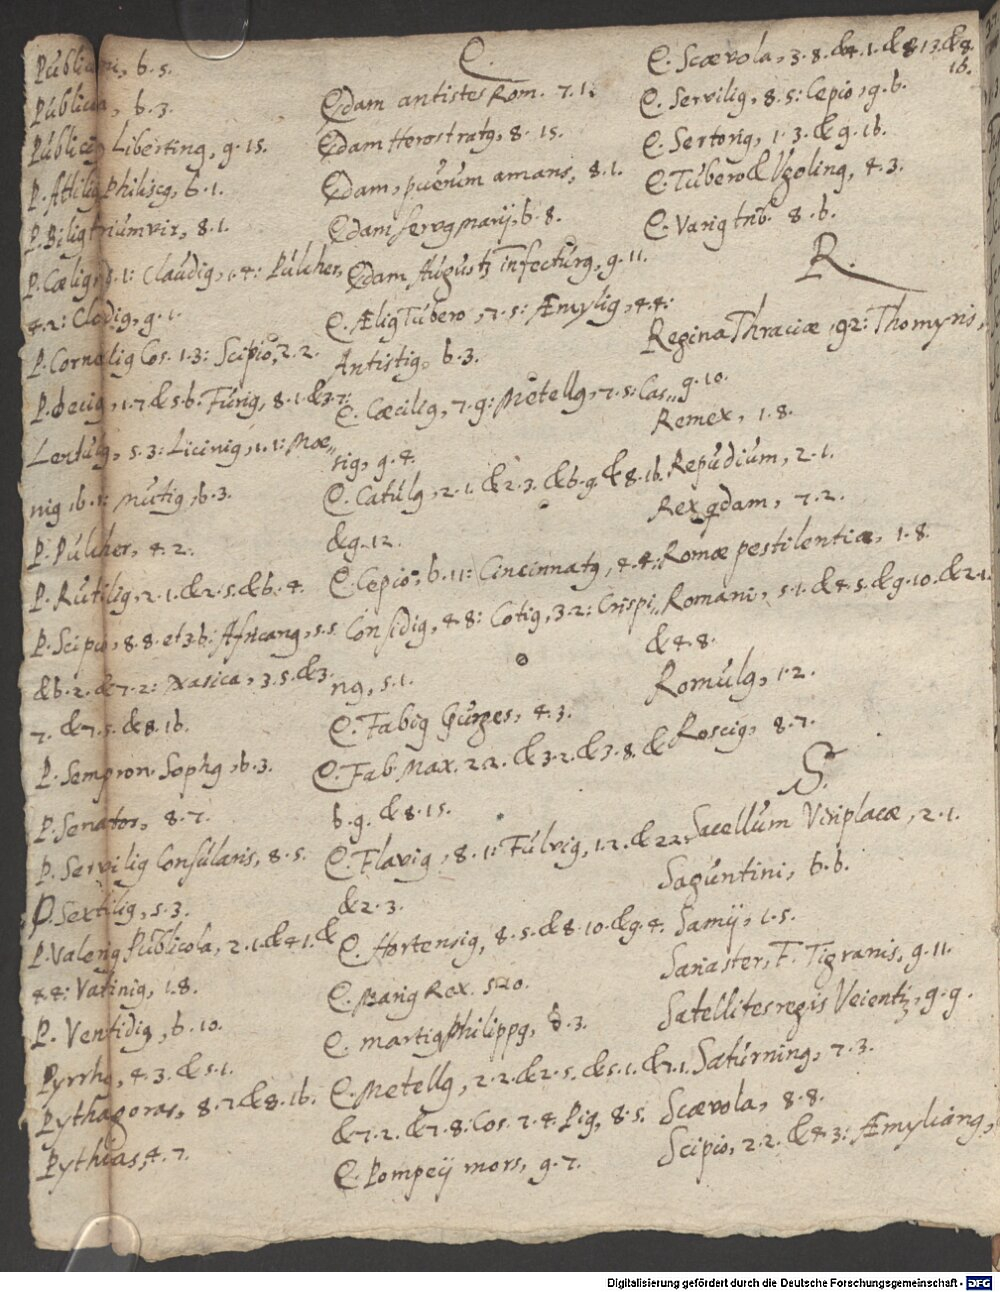 Publicani, 6.5.
Publicia, 6.3.
Publiciꝰ Libertinꝰ, 9.15.
P. Atiliꝰ Philiscꝰ, 6.1.
P. Biliꝰ triumvir, 8.1.
P. Cæliꝰ, 8.1: Claudiꝰ, 1.4: Pulcher,
4.2: Clodiꝰ, 9.1.
P. Corneliꝰ Cos. 1.3: Scipio, 2.2.
P. Deciꝰ, 1.7. & 5.6. Furiꝰ, 8.1. & 3.7:
Lentulꝰ, 5.3: Liciniꝰ, 1.1: Mæ„
niꝰ, 6.1: Mutiꝰ, 6.3.
P. Pulcher, 4.2.
P. Rutiliꝰ, 2.1. & 2.5. & 6.4.
P. Scipio, 8.8. et 3.6: Africanꝰ, 5.5.
& 6.2. & 7.2: Nasica, 3.5. & 3.
7. & 7.5. & 8.16.
P. Sempron. Sophꝰ, 6.3.
P. Senator, 8.7.
P. Serviliꝰ Consularis, 8.5.
P. Sextiliꝰ, 5.3.
P. Valeriꝰ Publicola, 2.1. & 4.1. &
4.4: Vatiniꝰ, 1.8.
P. Ventidiꝰ, 6.10.
Pyrrhꝰ, 4.3. & 5.1.
Pythagoras, 8.7. & 8.16.
Pythias, 4.7.
Q.
Qdam antistes Rom. 7.1.
Qdam Herostratꝰ, 8.15.
Qdam, puerum amans, 8.1.
Qdam servꝰ Marij, 6.8.
Qdam Augustꝫ infecturꝰ, 9.11.
Q. Æliꝰ Tubero, 7.5: Æmyliꝰ, 4.4:
Antistiꝰ, 6.3.
Q. Cæciliꝰ, 7.9: Metellꝰ, 7.5: Cas„
siꝰ, 9.4.
Q. Catulꝰ, 2.1. & 2.3. & 6.9. & 8.16.
& 9.12.
Q. Cepio, 6.11: Cincinnatꝰ, 4.4:
Considiꝰ, 4.8: Cotiꝰ, 3.2: Crispi„
nꝰ, 5.1.
Q. Fabiꝰ Gurges, 4.3.
Q. Fab. Max. 2.2. & 3.2. & 3.8. &
6.9. & 8.15.
Q. Flaviꝰ, 8.1: Fulviꝰ, 1.2. & 2.2.
& 2.3.
Q. Hortensiꝰ, 8.5. & 8.10. & 9.4.
Q. Martiꝰ Rex. 5.10.
Q. Martiꝰ Philippꝰ, 6.3.
Q. Metellꝰ, 2.2. & 2.5. & 5.1. & 7.1.
& 7.2. & 7.8. Cos. 7.4. Piꝰ, 8.5.
Q. Pompeij mors, 9.7.
Q. Scævola, 3.8. & 4.1. & 8.13. & 8.
16.
Q. Serviliꝰ, 8.5: Cepio, 9.6.
Q. Sertoriꝰ, 1.3. & 9.16.
Q. Tubero & Ugolinꝰ, 4.3.
Q. Variꝰ trib. 8.6.
R.
Regina Thraciæ, 9.2: Thomyris,
9.10.
Remex, 1.8.
Repudium, 2.1.
Rex qdam, 7.2.
Romæ pestilentia, 1.8.
Romani, 5.1. & 4.5. & 9.10. & 2.1.
& 4.8.
Romulꝰ, 1.2.
Rosciꝰ, 8.7.
S.
Sacellum Viriplacæ, 2.1.
Saguntini, 6.6.
Samij, 1.5.
Sariaster, F. Tigranis, 9.11.
Satellites regis Veientꝫ, 9.9.
Saturninꝰ, 7.3.
Scævola, 8.8.
Scipio, 2.2. & 4.3: Æmylianꝰ,
Digitalisierung gefördert durch die Deutsche Forschungsgemeinschaft - DFG